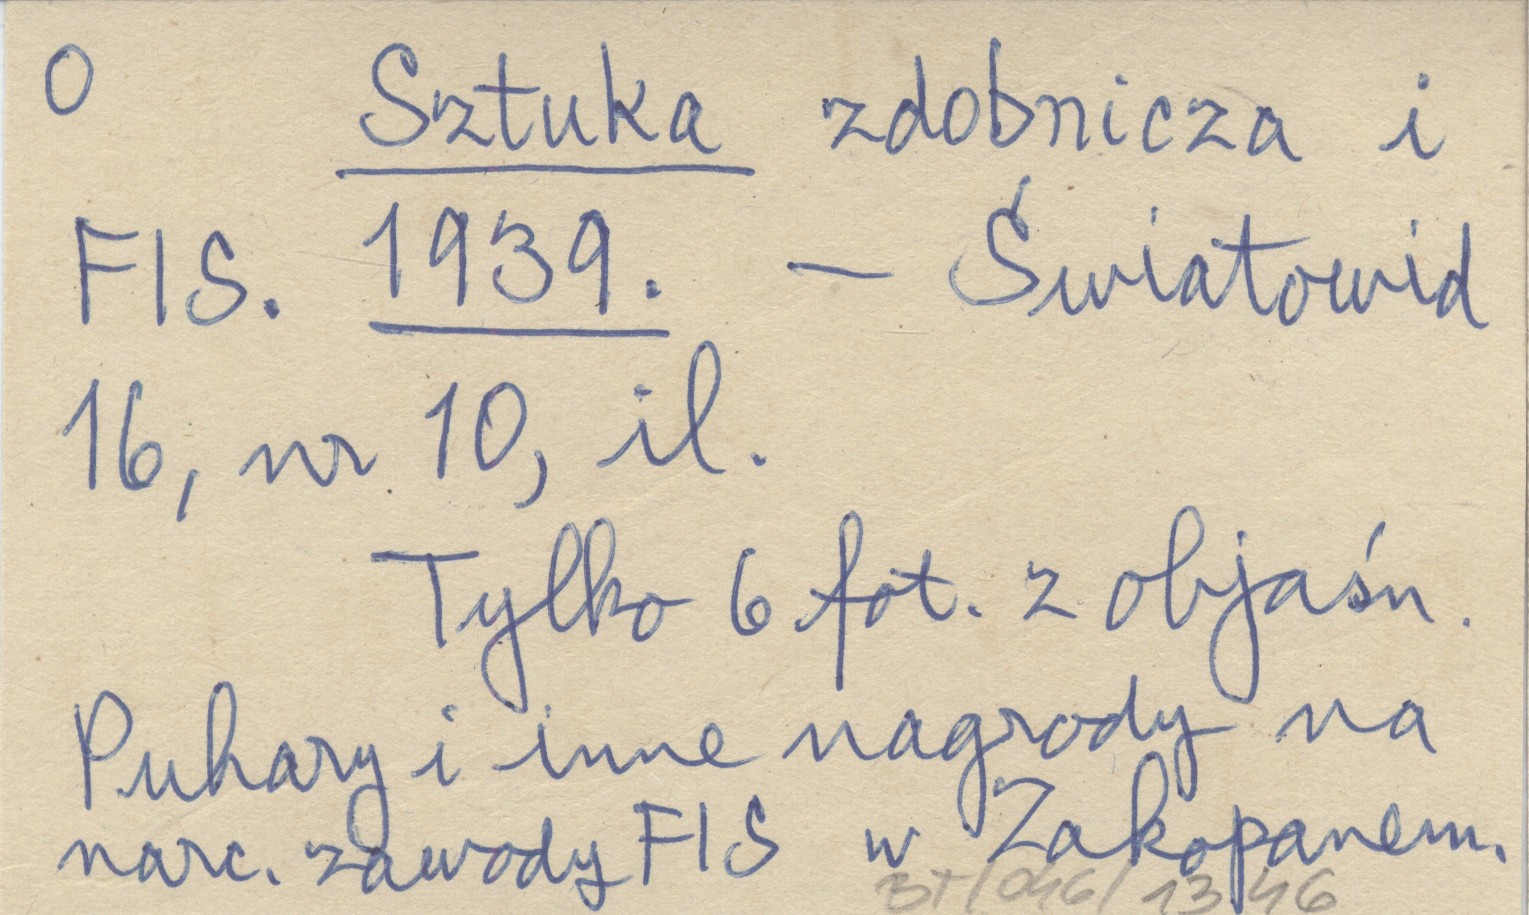 O Sztuka zdobnicza i
FIS. 1939. — Światowid
16, nr 10, il.
Tylko 6 fot. z objaśn.
Puhary i inne nagrody na
narc. zawody FIS w Zakopanem.
BT/046/13/46